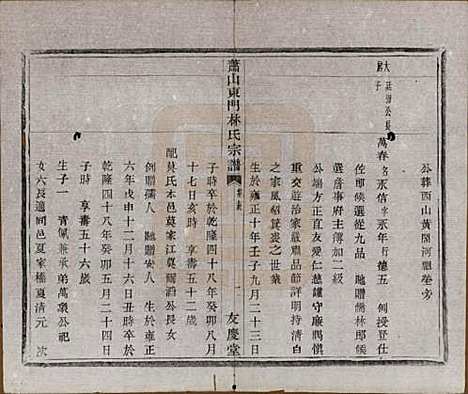 公葬西山黃閣河龍卷旁
大房
廷謝公長子
萬春名永信字永年行德五 例授登仕
佐郎候選從九品 貤贈儒林郎候
選詹事府主簿加二級
公端方正直友愛仁慈謹守厥慎
重交遊治家嚴肅品節評明持清白
之家風紹箕裘之世業
生於雍正十年壬子九月二十三日
蕭山東門林氏宗譜
一
友慶堂
子時卒於乾隆四十八年癸卯八月
十七日亥時 享壽五十二歲
配莫氏本邑莫家江莫爾滔公長女
例贈孺人 貤贈安人 生於雍正
六年戊申十二月十六日丑時卒於
乾隆四十八年癸卯五月二十四日
子時 享壽五十六歲
生子一 青佩兼承弟萬公祀
女六長適同邑夏家橋夏清元 次